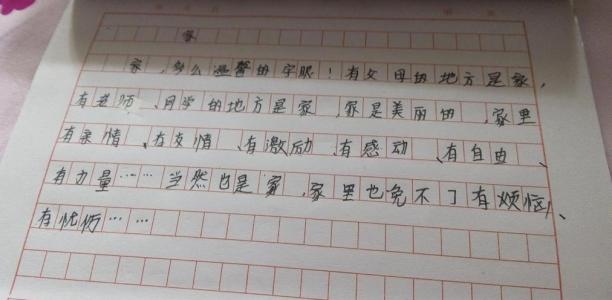 家
家，多么温馨的字眼！有父母的地方是家，
有老师、同学的地方是家，家是美丽的，家里
有亲情、有友情、有激励、有感动、有自由、
有力量……当然也是家，家里也免不了有烦恼、
有忧伤……